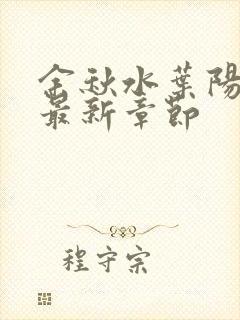 金秋水葉陽
最新章節
程守宗